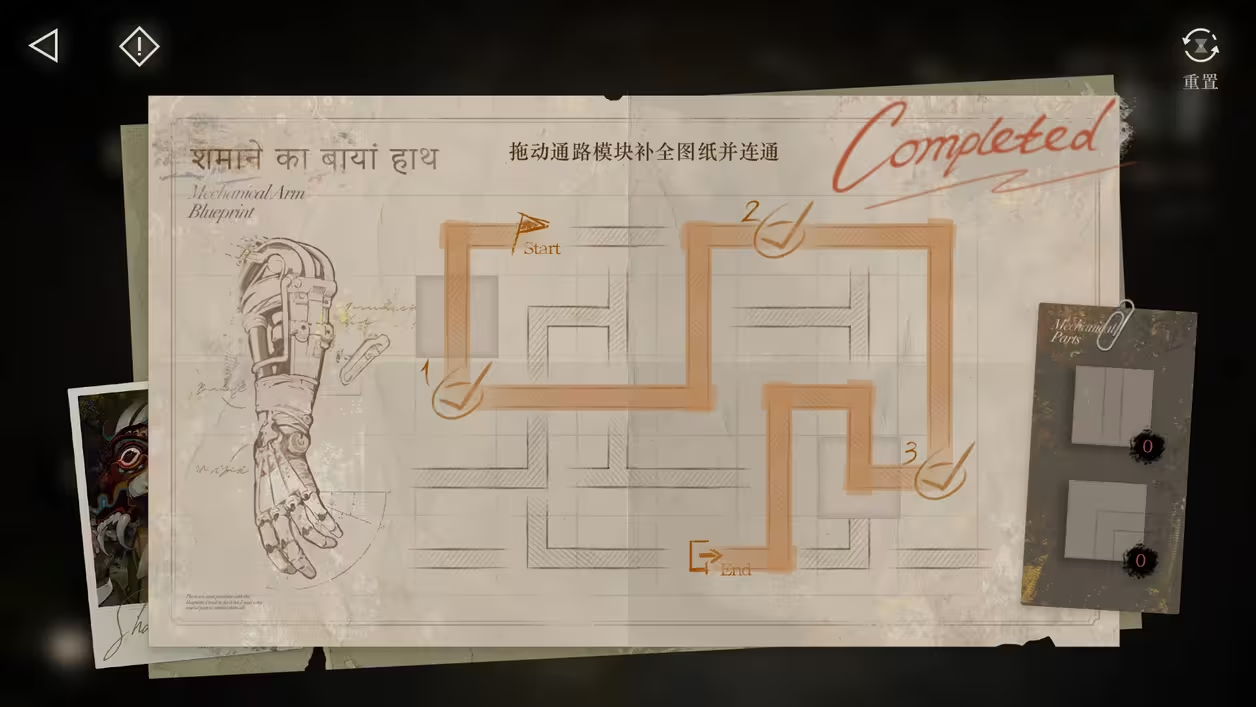 重置
शमाने का बायां हाथ
拖动通路模块补全图纸并连通
Completed
Mechanical Arm
Blueprint
Start
2
1
3
End
Mechanical
Parts
0
0